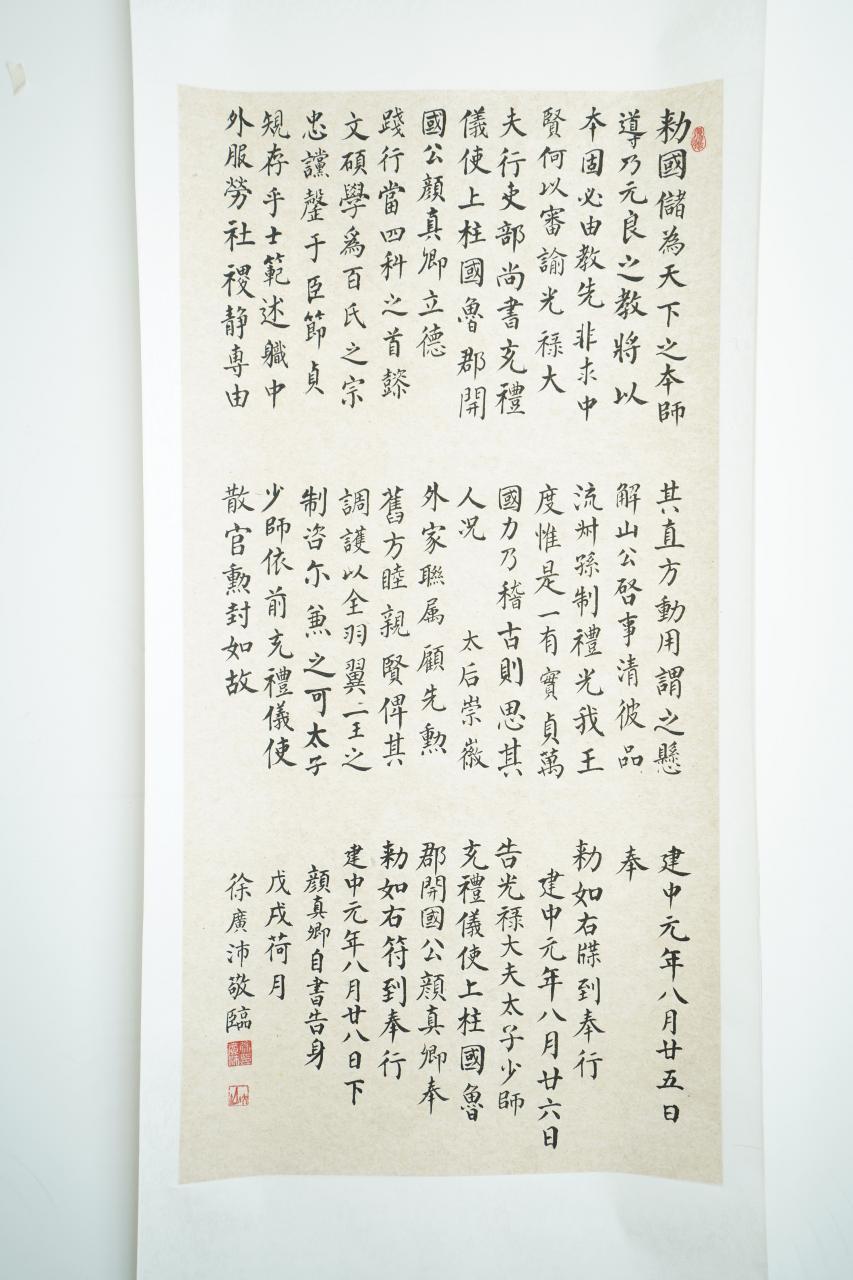 勑國儲為天下之本師
導乃元良之教將以
本固必由教先非求中
賢何以審諭光祿大
夫行吏部尚書充禮
儀使上柱國魯郡開
國公顏真卿立德
踐行當四科之首懿
文碩學爲百氏之宗
忠讜罄于臣節貞
規存乎士範述職中
外服勞社稷静專由
其直方動用謂之懸
解山公啓事清彼品
流叔孫制禮光我王
度惟是一有實貞萬
國力乃稽古則思其
人況 太后崇徽
外家聯属顧先勳
舊方睦親賢俾其
調護以全羽翼二王之
制咨尔兼之可太子
少師依前充禮儀使
散官勳封如故
建中元年八月廿五日
奉
勑如右牒到奉行
建中元年八月廿六日
告光祿大夫太子少師
充禮儀使上柱國魯
郡開國公顏真卿奉
勑如右符到奉行
建中元年八月廿八日下
顏真卿自書告身
戊戌荷月
徐廣沛敬臨